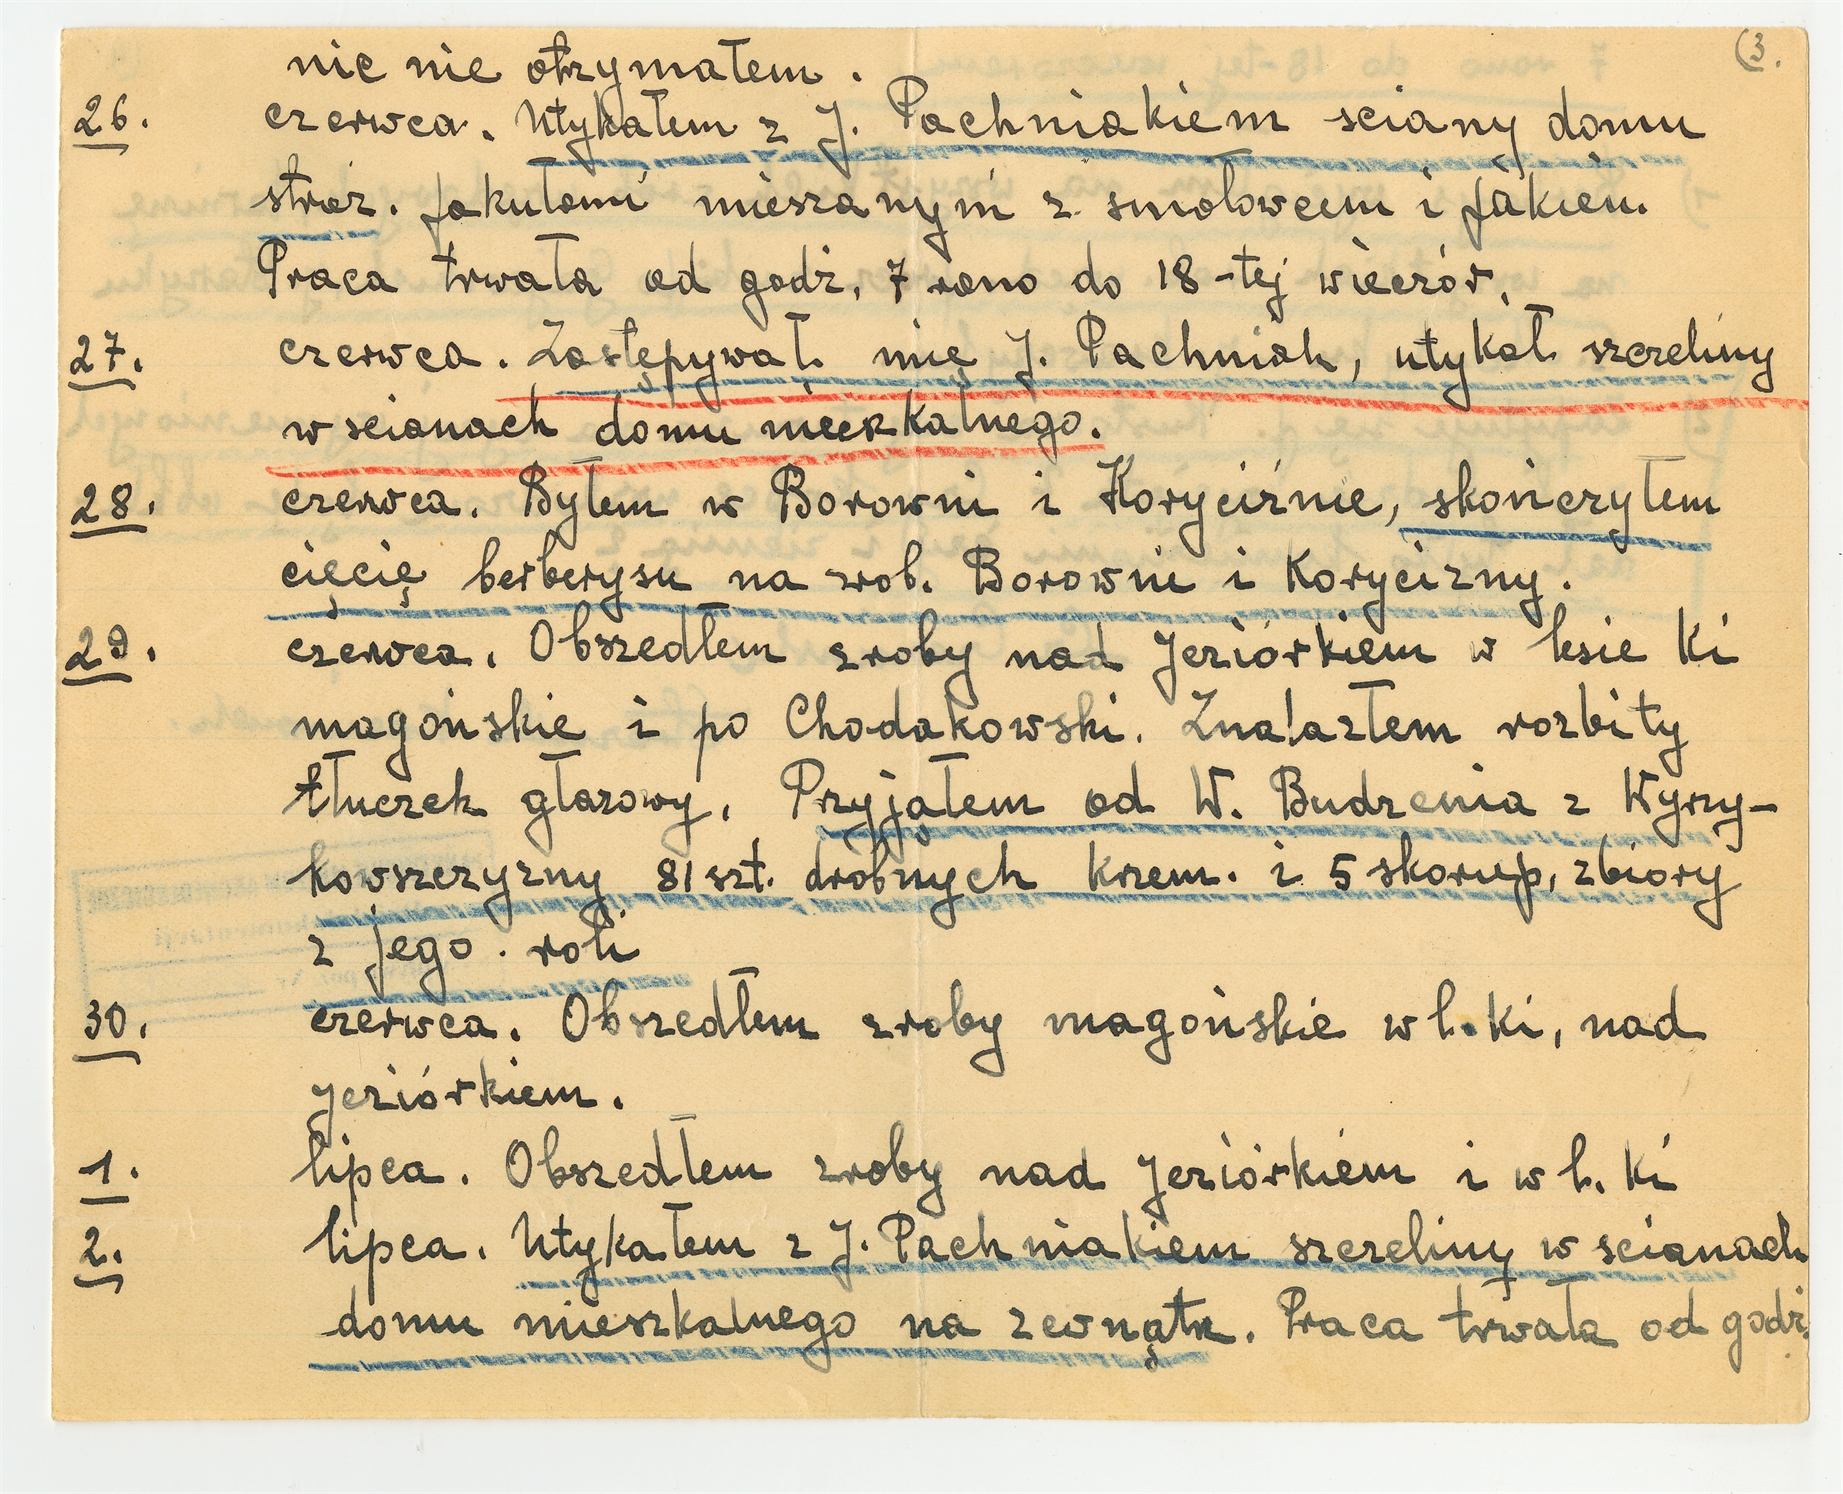 (3.
nic nie otrzymałem.
26. czerwca. Utykałem z J. Pachniakiem sciany domu
straż. pakułami mieszanym z smołowcem i pakiem.
Praca trwała od godz. 7 rano do 18-tej wieczór.
27. czerwca. Zastępywał mię J. Pachniak, utykał szczeliny
w scianach domu mieszkalnego.
28. czerwca. Byłem w Borowni i Koryciźnie, skończyłem
cięcię berberysu na zrob. Borowni i Korycizny.
29. czerwca. Obszedłem zroby nad Jeziórkiem w lesie Ki
magońskie i po Chodakowski. Znalazłem rozbity
tłuczek głazowy. Przyjąłem od W. Budzenia z Wyrzy-
kowszczyzny 81 szt. drobnych krzem. i 5 skorup, zbiory
z jego roli
30. czerwca. Obszedłem zroby magońskie w l. Ki, nad
jeziórkiem.
1. lipca. Obszedłem zroby nad Jeziórkiem i w l. Ki
2. lipca. Utykałem z J. Pachniakiem szczeliny w scianach
domu mieszkalnego na zewnątrz. Praca trwała od godz.